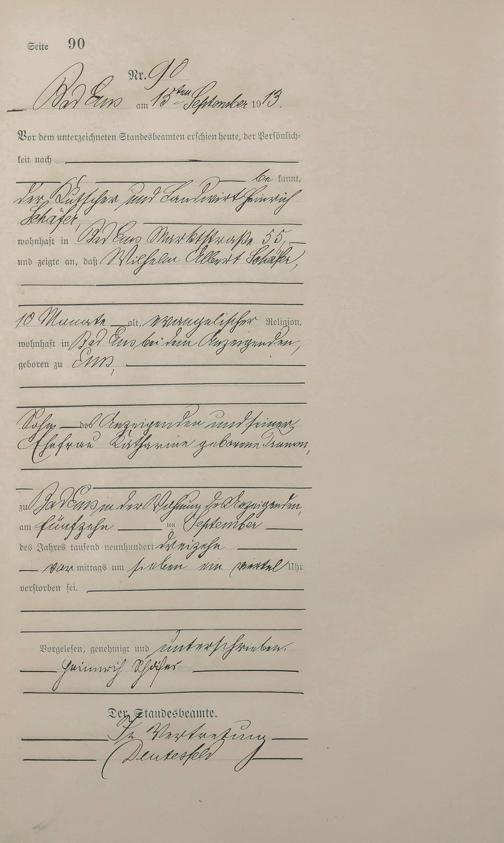 Seite 90
Nr. 90
Bad Ems am 15ten September 1913.
Vor dem unterzeichneten Standesbeamten erschien heute, der Persönlich-
keit nach
be kannt,
der Kutscher und Landwirt Heinrich
Schäfer,
wohnhaft in Bad Ems Marktstraße 55,
und zeigte an, daß Wilhelm Albert Schäfer,
10 Monate alt, evangelischer Religion,
wohnhaft in Bad Ems bei dem Anzeigenden,
geboren zu Ems,
Sohn des Anzeigenden und seiner
Ehefrau Katharine geborene
zu Bad Ems, in der Wohnung des Anzeigenden,
am fünfzehn ten September
des Jahres tausend neunhundert dreizehn
vor mittags um sieben ein viertel Uhr
verstorben sei.
Vorgelesen, genehmigt und unterschrieben.
Heinrich Schäfer
Der Standesbeamte.
In Vertretung